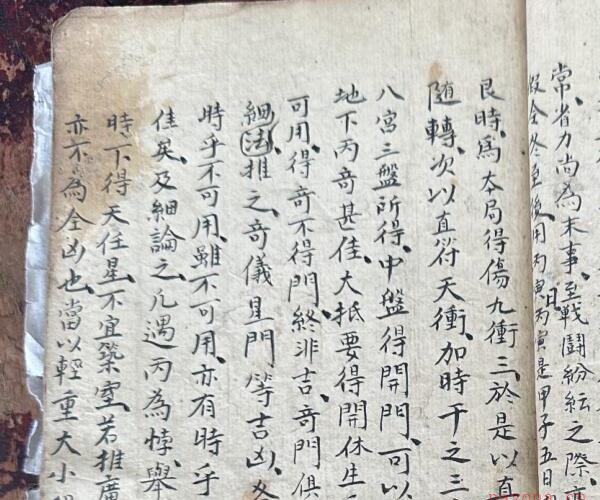 常、省力尚為末事、至戰鬪紛紜之際、
假令冬至後、用丙寅日、丙寅是甲子五日
艮時、為本局得傷九衝三、於是以直
隨轉、次以直符天衝、加時干之三
八宮三盤所得、中盤得開門、可以
地下丙奇甚佳、大抵要得開休生
可用、得奇不得門、終非吉、奇門俱
細法推之、奇儀星門、等吉凶、
時乎不可用、雖不可用、亦有時乎
佳矣、及細論之、凡遇丙為悖、舉
時下得天任星、不宜築室、若推廣
亦不為全凶也、當以輕重大小